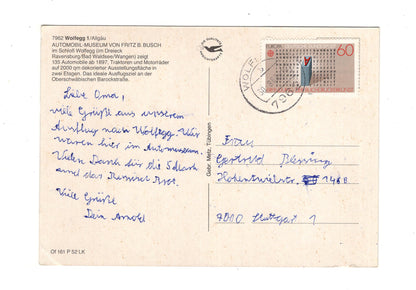 7962 Wolfegg 1/Allgäu
AUTOMOBIL-MUSEUM VON FRITZ B. BUSCH
im Schloß Wolfegg (im Dreieck
Ravensburg/Bad Waldsee/Wangen) zeigt
135 Automobile ab 1897, Traktoren und Motorräder
auf 2000 qm dekorierter Ausstellungsfläche in
zwei Etagen. Das ideale Ausflugsziel an der
Oberschwäbischen Barockstraße.
Liebe Oma,
viele Grüße aus unserem
Ausflug nach Wolfegg. Wir
waren hier im Automuseum.
Vielen Dank für die Schok
und das
Viele Grüße
Dein Arnold
Of 161 P 52 LK
Gebr. Metz, Tübingen
EUROPA
60
DEUTSCHE BUNDESPOST
WOLFEGG
796
Frau
Gertrud
Hohentwielstr. 146B
7000 Stuttgart 1